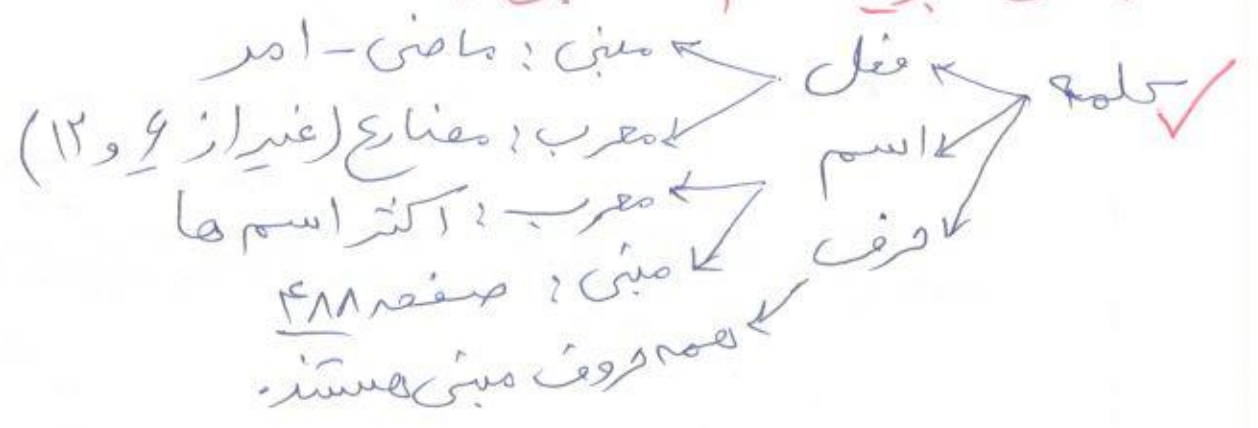 کلمه
فعل
مبنی : ماضی - امر
معرب : مضارع (غیر از ۶ و ۱۲)
اسم
معرب : اکثر اسم ها
مبنی : صفحه ۴۸۸
حرف
همه حروف مبنی هستند.